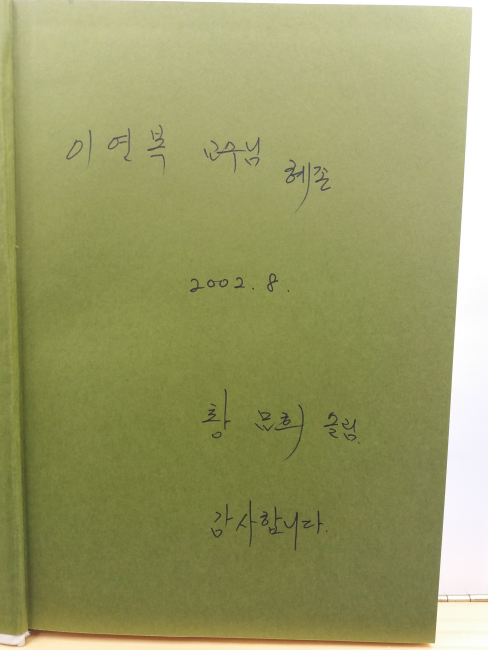 이연복 교수님 혜존
2002. 8.
황 드림.
감사합니다.